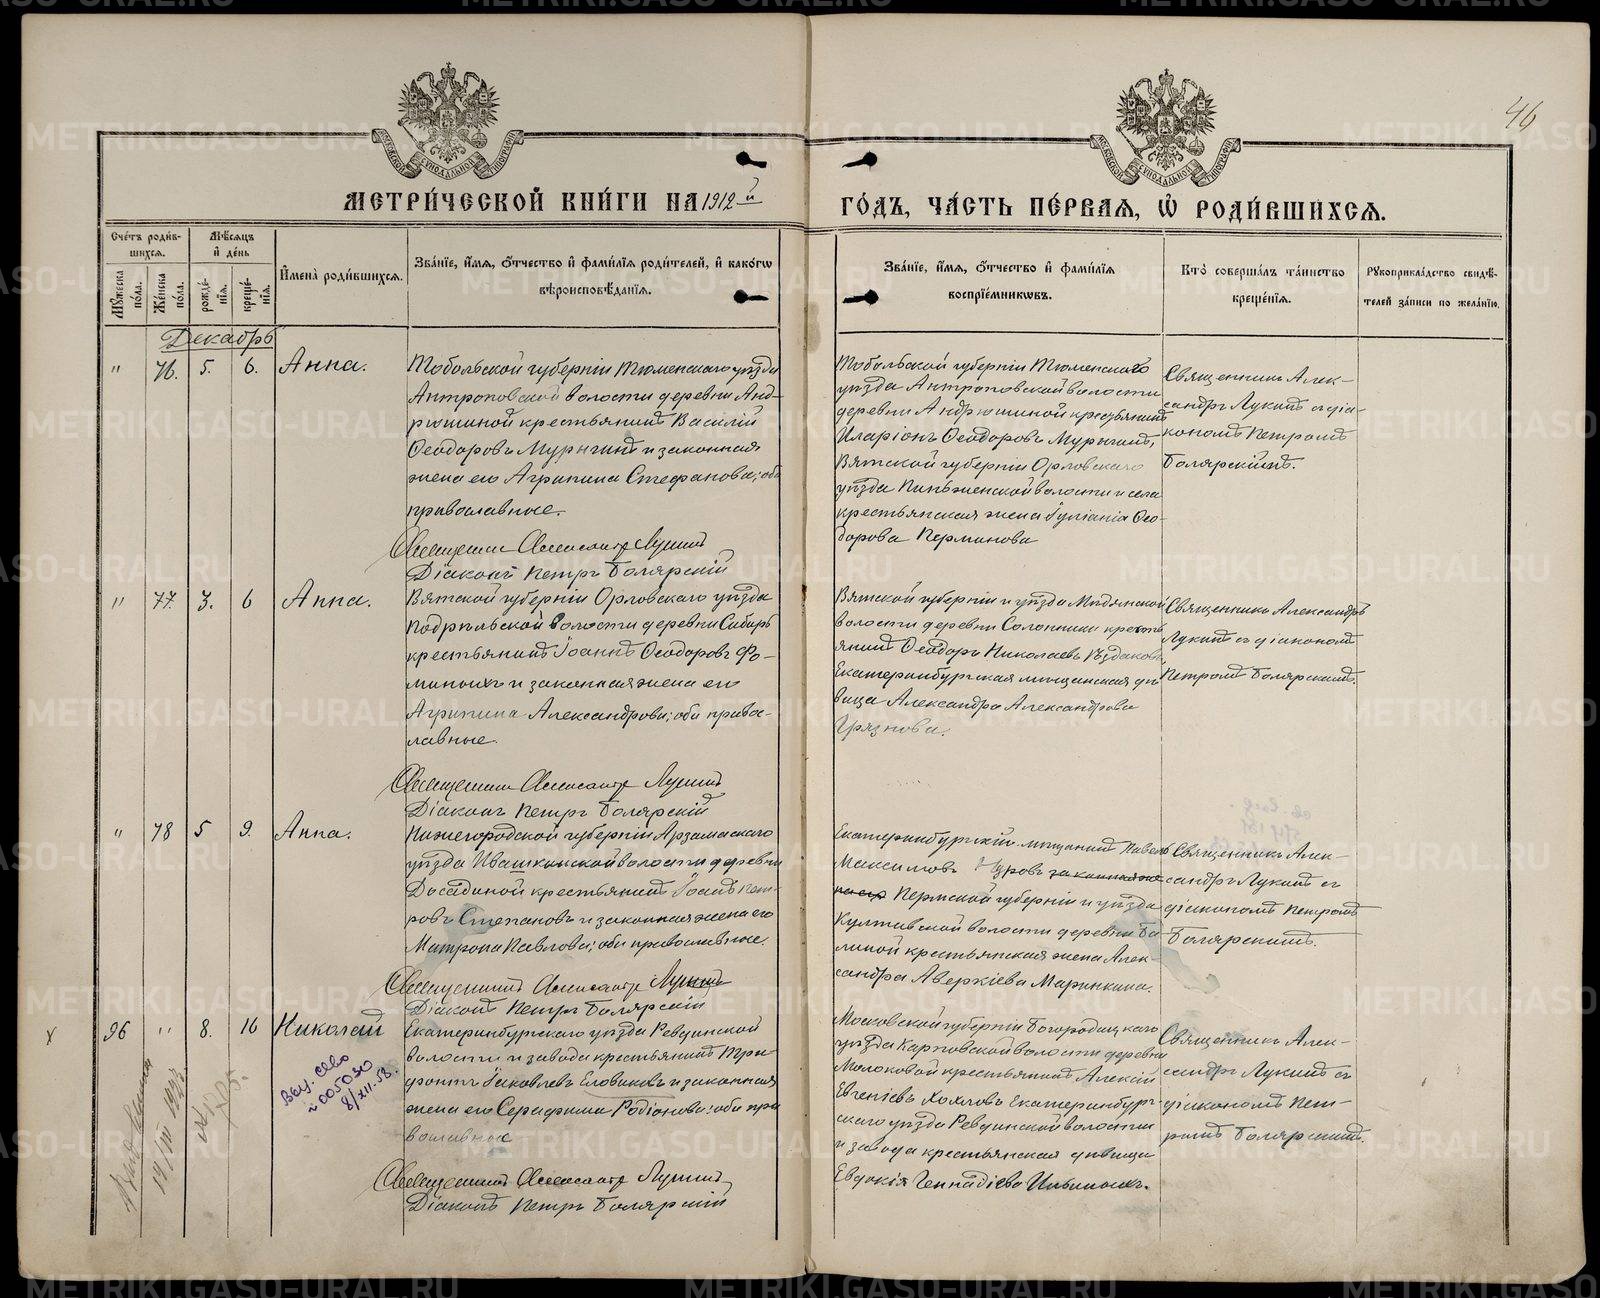 46
МЕТРИ́ЧЕСКОЙ КНИ́ГИ НА 1912 й
ГО́ДЪ, ЧА́СТЬ ПЕ́РВАЯ, Ѡ РОДИ́ВШИХСЯ.
Сче́тъ роди́в-
шихся.
Мѣ́сяцъ
и҆ де́нь
Му́жеска
по́ла.
Же́нска
по́ла.
рожде́-
нїя.
креще́-
нїя.
И҆мена̀ роди́вшихся.
Зва́нїе, и҆́мя, ѻ҆́тчество и҆ фами́лїя роди́телей, и҆ како́гѡ
вѣроисповѣ́данїя.
Зва́нїе, и҆́мя, ѻ҆́тчество и҆ фами́лїя
воспрїе́мникѡвъ.
Кто̀ соверша́лъ та́инство
креще́нїя.
Рукоприкла́дство свидѣ́-
телей за́писи по жела́нїю.
Декабрь
" 76. 5. 6. Анна.
Тобольской губерніи Тюменскаго уѣзда
Антроповской волости деревни Анд-
рюшиной крестьянинъ Василій
Ѳеодоровъ Мурыгинъ и законная
жена его Агрипина Стефанова; оба
православные.
Священникъ Александръ Лукинъ
Діаконъ Петръ Болярскій
Тобольской губерніи Тюменскаго
уѣзда Антроповской волости
деревни Андрюшиной крестьянинъ
Иларіонъ Ѳеодоровъ Мурыгинъ,
Вятской губерніи Орловскаго
уѣзда Пинюженской волости и села
крестьянская жена Іуліанія Ѳео-
дорова Перминова
Священникъ Алек-
сандръ Лукинъ съ діа-
кономъ Петромъ
Болярскимъ.
" 77. 3. 6 Анна.
Вятской губерніи Орловскаго уѣзда
Подрѣльской волости деревни Сибирь
крестьянинъ Іоаннъ Ѳеодоровъ Фо-
миныхъ и законная жена его
Агрипина Александрова; оба право-
славные.
Священникъ Александръ Лукинъ
Діаконъ Петръ Болярскій
Вятской губерніи и уѣзда Мидянской
волости деревни Солонники кресть-
янинъ Ѳеодоръ Николаевъ
Екатеринбургская мѣщанская дѣ-
вица Александра Александрова
Грязнова.
Священникъ Александръ
Лукинъ съ діакономъ
Петромъ Болярскимъ.
" 78 5 9. Анна.
Нижегородской губерніи Арзамаскаго
уѣзда Ивашкинской волости деревни
Досадиной крестьянинъ Іоаннъ Пет-
ровъ Степановъ и законная жена его
Матрона Павлова; оба православные.
Священникъ Александръ Лукинъ
Діаконъ Петръ Болярскій
Екатеринбургскій мѣщанинъ Павелъ
Максимовъ законная же-
на его Пермской губерніи и уѣзда
Култаевской волости деревни Ба-
линой крестьянская жена Алек-
сандра Аверкіева Маринкина.
Священникъ Алек-
сандръ Лукинъ съ
діакономъ Петромъ
Болярскимъ.
96 " 8. 16 Николай
Выд. св-во
№ 005030
8/XII.58.
Екатеринбургскаго уѣзда Ревдинской
волости и завода крестьянинъ Три-
фонъ Іаковлевъ Еловиковъ и законная
жена его Серафима Родіонова; оба пра-
вославные
Священникъ Александръ Лукинъ
Діаконъ Петръ Болярскій
Московской губерніи Богородицкаго
уѣзда Карповской волости деревни
Молоковой крестьянинъ Алексій
Евгеніевъ Хохловъ Екатеринбург-
скаго уѣзда Ревдинской волости
и завода крестьянская дѣвица
Евдокія Геннадіева Ильиныхъ.
Священникъ Алек-
сандръ Лукинъ съ
діакономъ Пет-
ромъ Болярскимъ.
METRIKI.GASO-URAL.RU